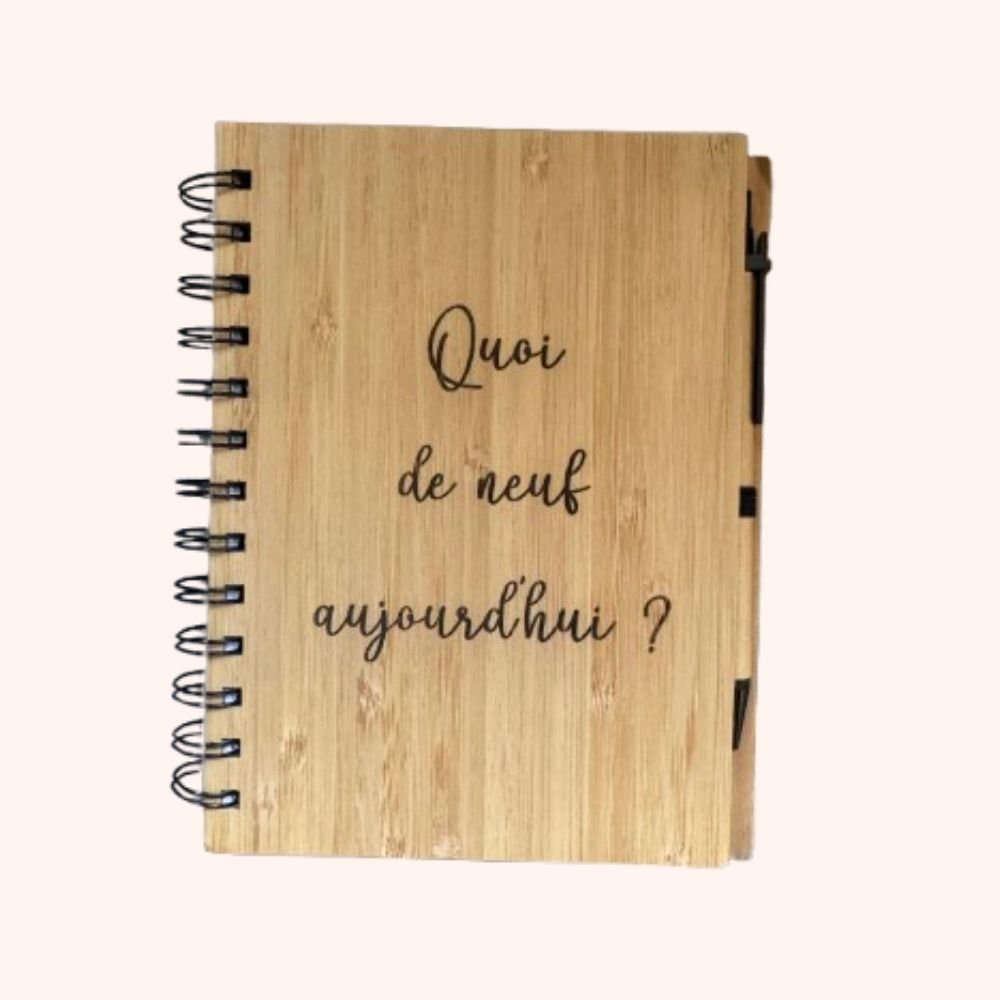 Quoi
de neuf
aujourd'hui ?